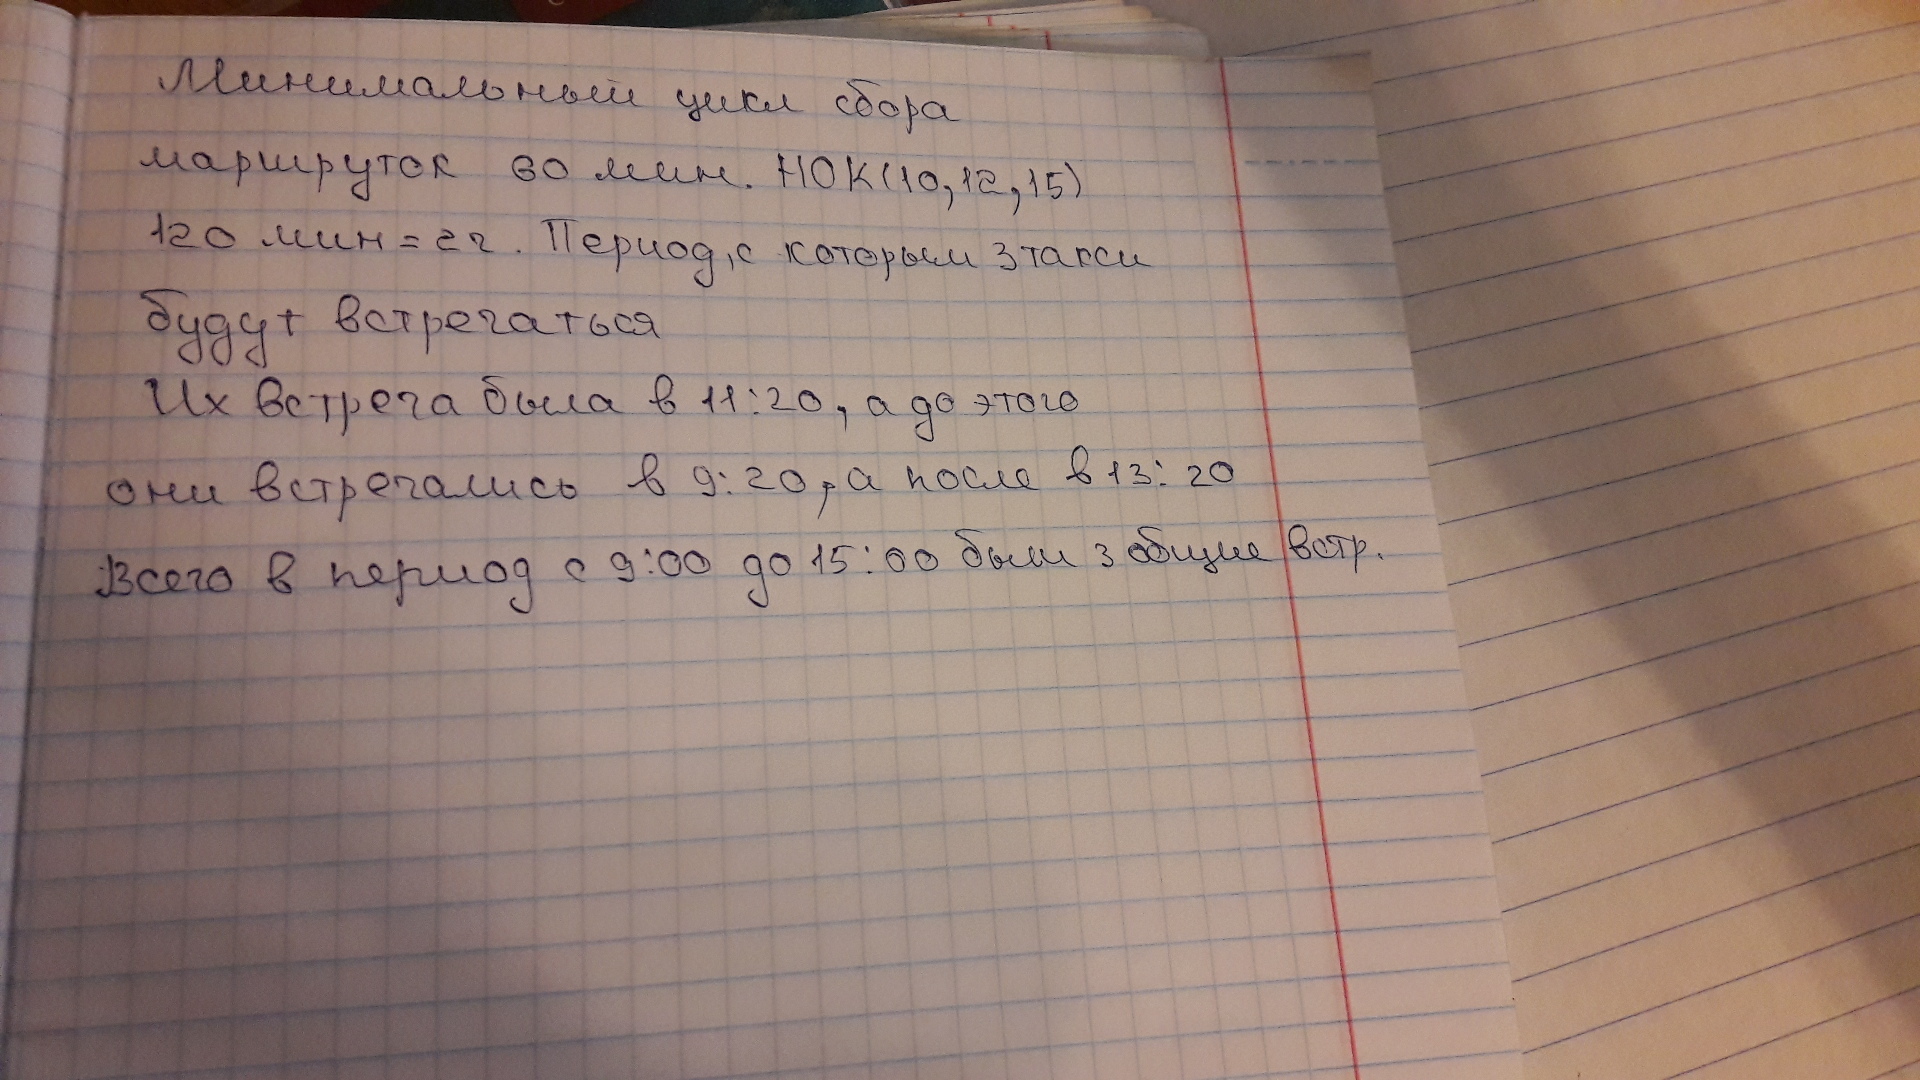 Минимальный цикл сбора
маршруток 60 мин. НОК(10,12,15)
120 мин = 2ч. Период, с которым 3 такси
будут встречаться
Их встреча была в 11:20, а до этого
они встречались в 9:20, а после в 13:20
Всего в период с 9:00 до 15:00 были 3 общие встр.